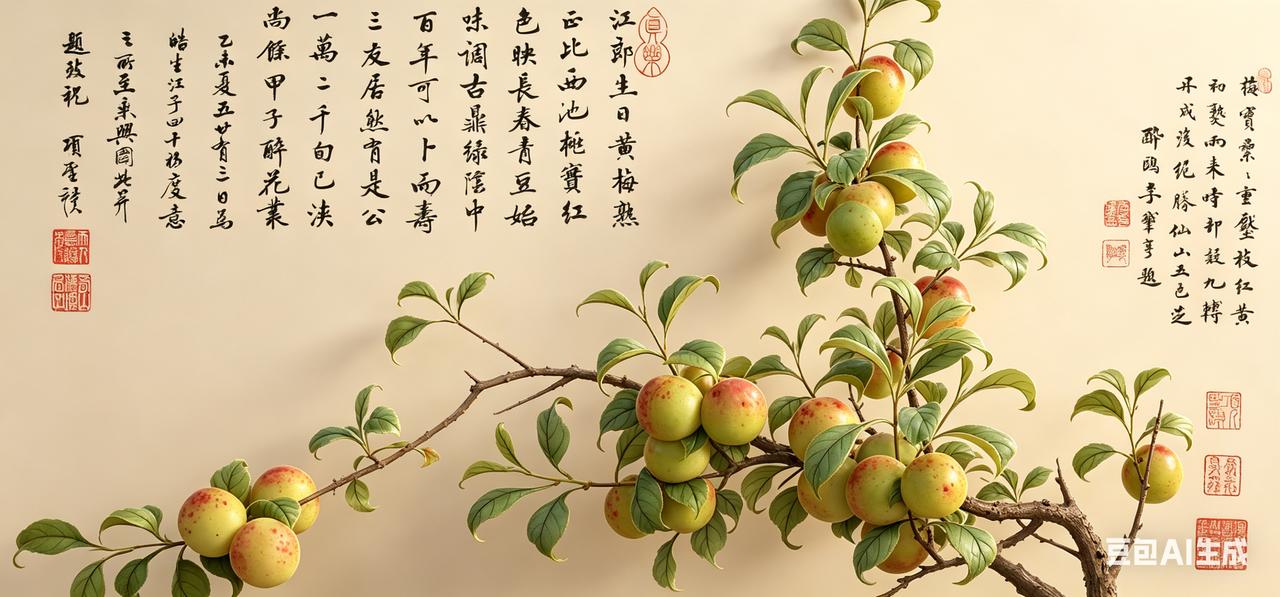 梅實纍々重壓枝紅黃
初熟雨來時却疑九轉
丹成後絕勝仙山五色芝
醉鷗李肇亨題
江郎生日黃梅熟
正比西池桃實紅
色映長春青豆始
味調古鼎綠陰中
百年可以卜而壽
三友居然宵是公
一萬二千旬已浹
尚餘甲子醉花叢
乙未夏五廿有三日爲
皓生江子四十初度意
之所至乘興圖此并
題致祝 項聖謨
豆包AI生成